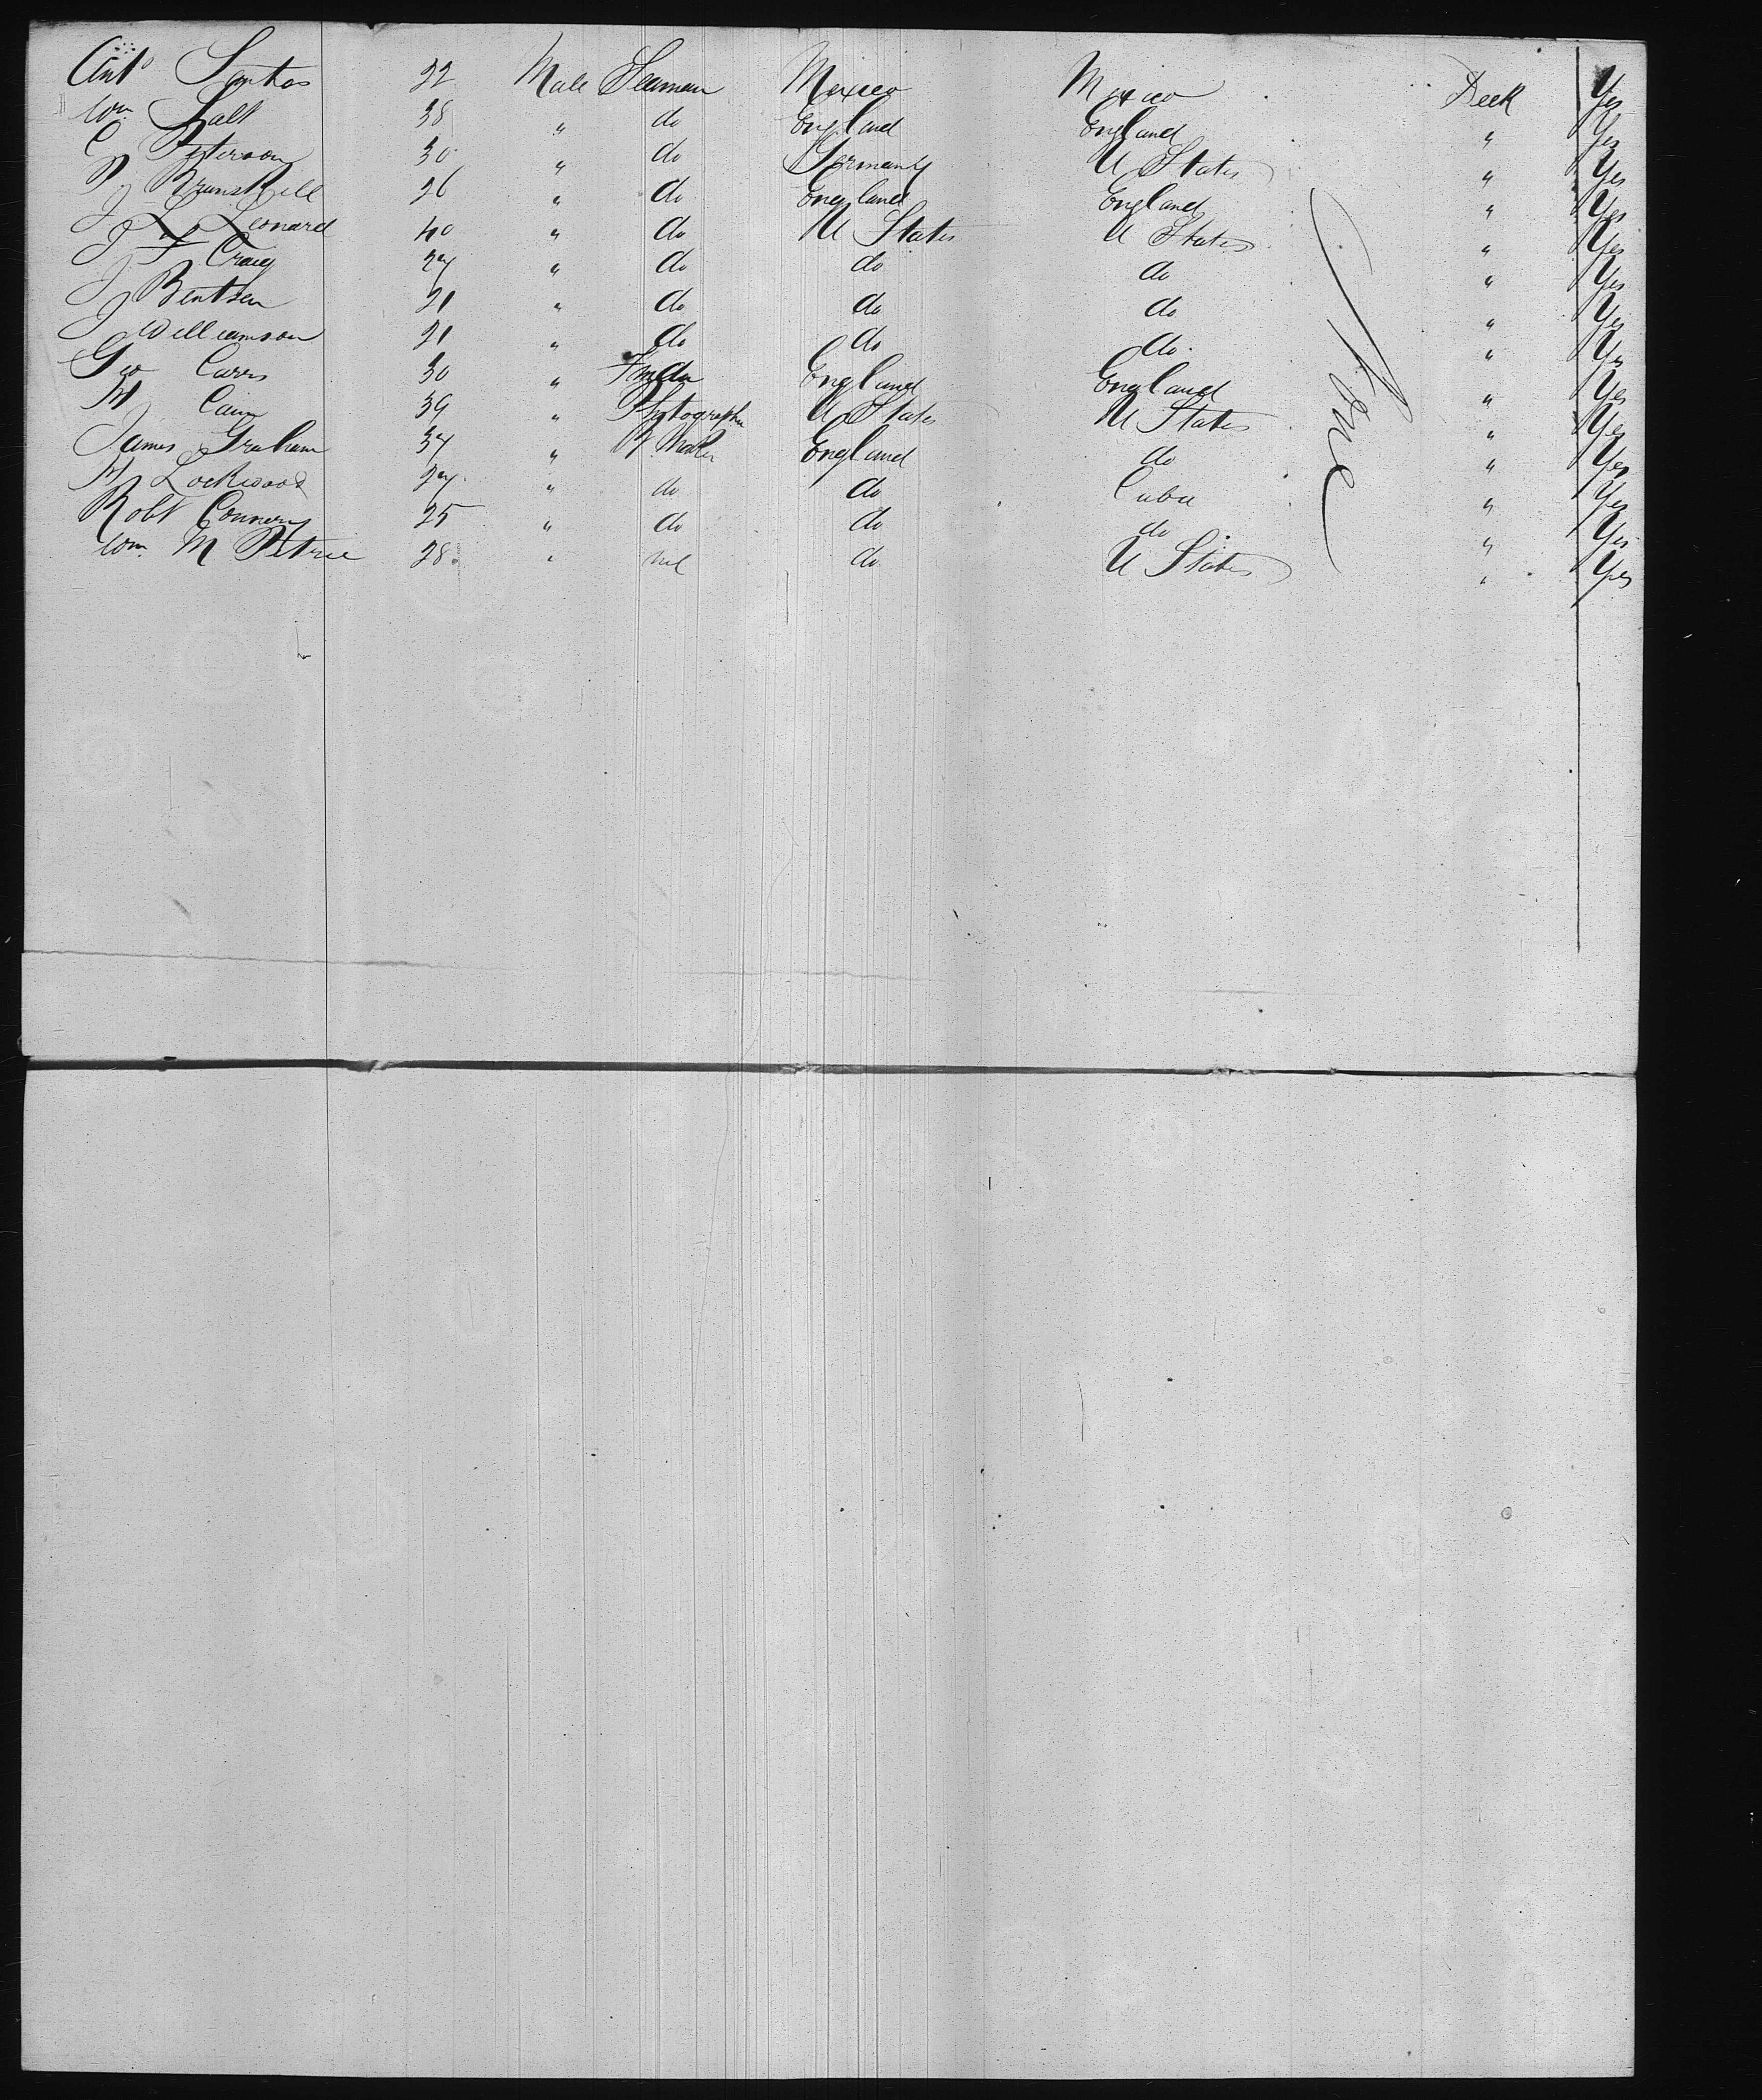 Anto Santos 22 Male Seaman Mexico Mexico Deck Yes
Wm Salt 38 " do England England " Yes
C Peterson 30 " do Germany U States " Yes
P Brunskill 26 " do England England " Yes
J L Leonard 40 " do U States U States " Yes
J F Craig 24 " do do do " Yes
J Bentsen 21 " do do do " Yes
J Williamson 21 " do do do " Yes
Geo Carrs 30 " England England " Yes
H Cain 39 " Photographer U States U States " Yes
James Graham 34 " B. Maker England do " Yes
H Lockwood 24 " do do Cuba " Yes
Robt Connery 25 " do do do " Yes
Wm M Petrie 28 " nil do U States " Yes
None